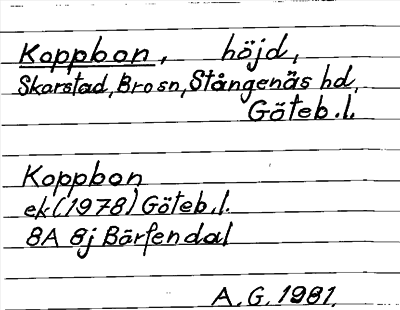 Koppbon, höjd,
Skarstad, Bro sn, Stångenäs hd,
Göteb.l.
Koppbon
ek (1978) Göteb.l.
8A 8j Bärfendal
A.G. 1981.